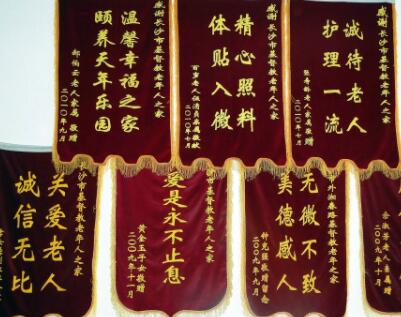 感谢长沙市基督教老年人之家
诚待老人
护理一流
老人家属敬赠
二〇一〇年七月
感谢长沙市基督教老年人之家
精心照料
体贴入微
二〇一〇年七月
温馨幸福之家
颐养天年乐园
老人家属敬赠
二〇一〇年九月
基督教老年人之家
无微不致
美德感人
二〇〇九年九月
市基督教老年人之家
爱是永不止息
黄金玉子女敬赠
二〇〇九年十一月
沙市基督教老年人之家
关爱老人
诚信无比
基督教老年人之家